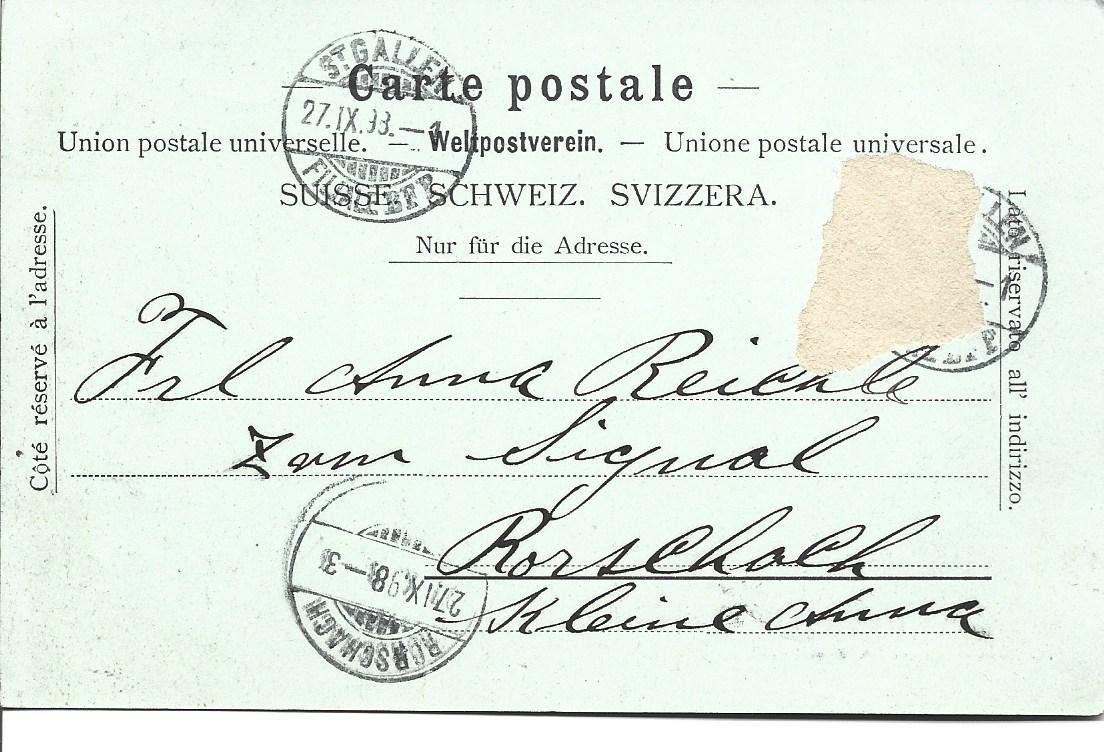 Carte postale
Union postale universelle. — Weltpostverein. — Unione postale universale.
SUISSE. SCHWEIZ. SVIZZERA.
Nur für die Adresse.
Côté réservé à l'adresse.
Lato riservato all' indirizzo.
ST GALLEN
27.IX.98.—1
Frl Anna Reichle
zum Signal
Rorschach
Kleine Anna
27.IX.98.—3
RORSCHACH